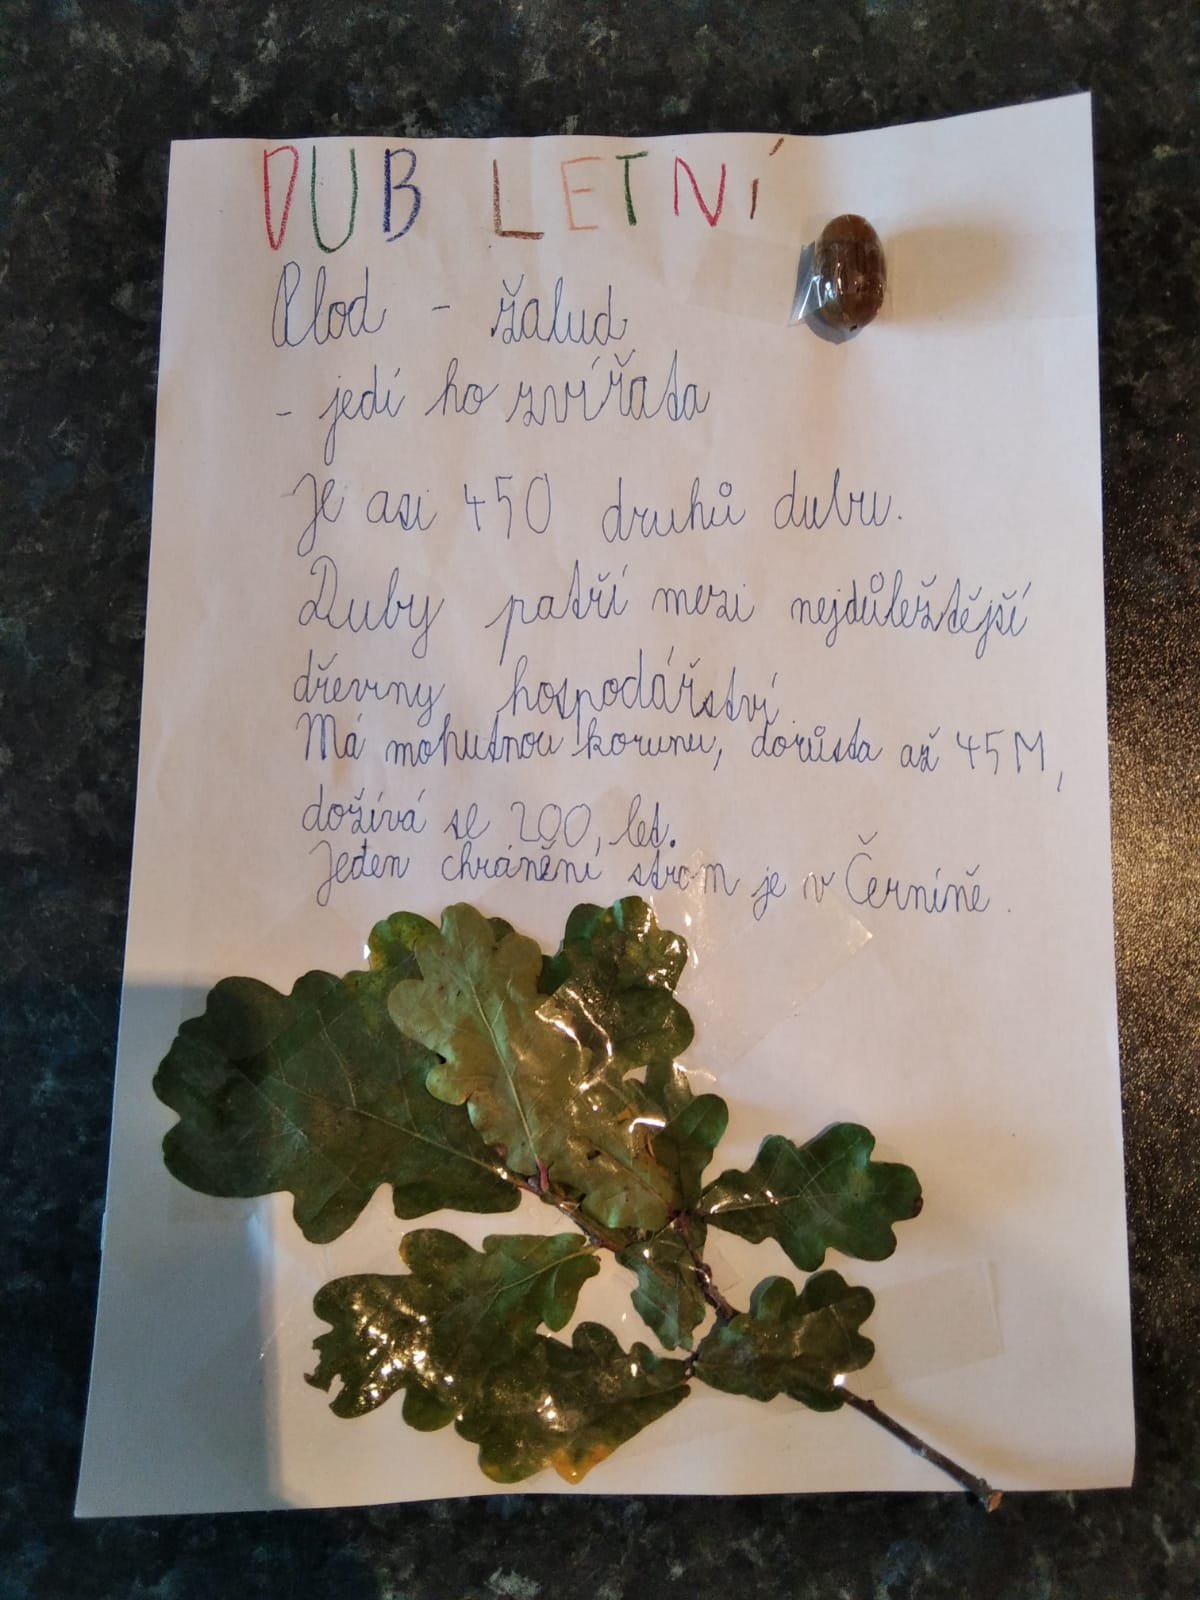 DUB LETNÍ
Plod - žalud
- jedí ho zvířata
Je asi 450 druhů dubu.
Duby patří mezi nejdůležtější
dřeviny hospodářství
Má mohutnou korunu, dorůsta až 45 M,
dožívá se 200, let.
Jeden chráněni strom je v Černíně.